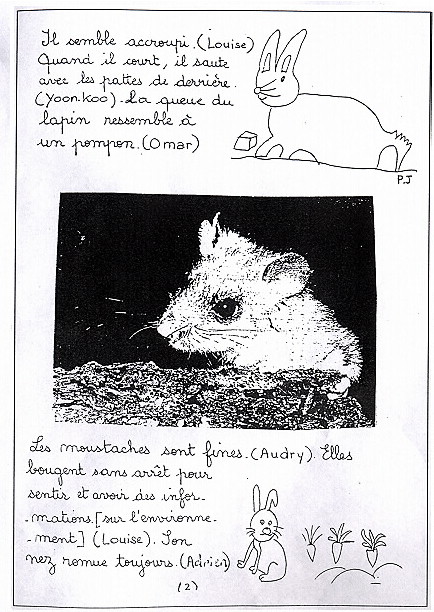 Il semble accroupi. (Louise)
Quand il court, il saute
avec les pattes de derrière.
(Yoon-Koo). La queue du
lapin ressemble à
un pompon. (Omar)
P.J
Les moustaches sont fines. (Audry). Elles
bougent sans arrêt pour
sentir et avoir des infor-
-mations. [sur l'environne-
-ment] (Louise). Son
nez remue toujours. (Adrien)
(2)